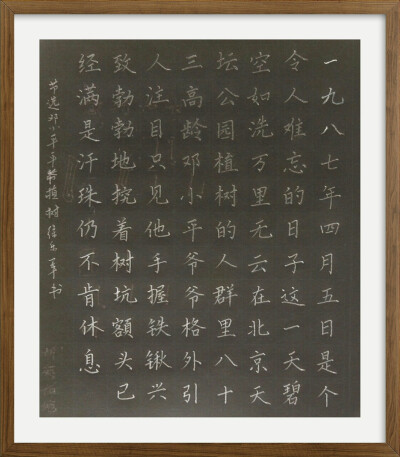 一九八七年四月五日是个
令人难忘的日子这一天碧
空如洗万里无云在北京天
坛公园植树的人群里八十
三高龄邓小平爷爷格外引
人注目只见他手握铁锹兴
致勃勃地挖着树坑額头已
经满是汗珠仍不肯休息
节选邓小平植树书